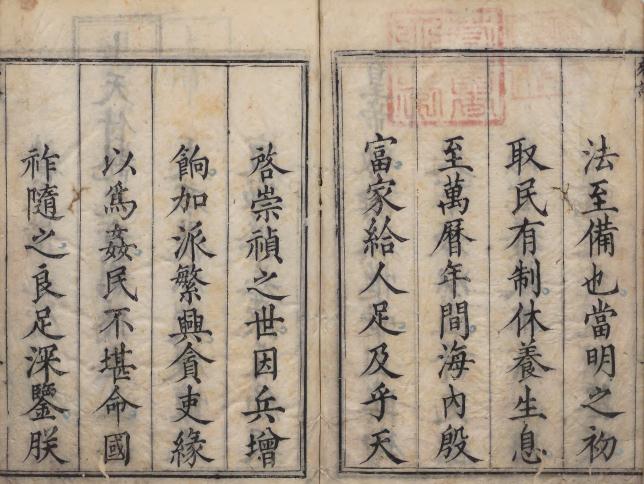 法至備也當明之初
取民有制休養生息
至萬曆年間海內殷
富家給人足及乎天
啓崇禎之世因兵增
餉加派繁興貪吏緣
以爲姦民不堪命國
祚隨之良足深鑒朕